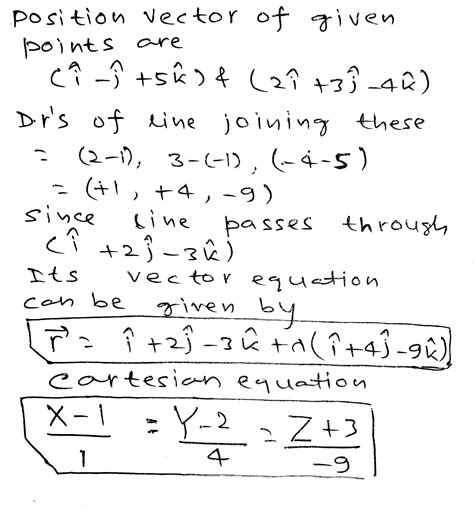 Position vector of given
points are
(î - ĵ + 5k̂) & (2î + 3ĵ - 4k̂)
D.r's of line joining these
= (2-1), 3-(-1), (-4-5)
= (+1, +4, -9)
Since line passes through
(î + 2ĵ - 3k̂)
Its vector equation
can be given by
r⃗ = î + 2ĵ - 3k̂ + λ(î + 4ĵ - 9k̂)
Cartesian equation
X-1/1 = Y-2/4 = Z+3/-9